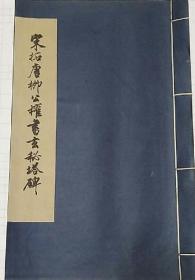 宋拓唐柳公權書玄秘塔碑